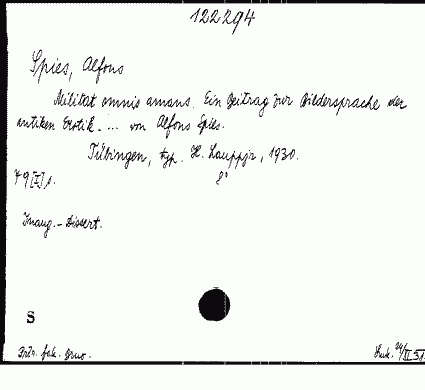 122294
Spies, Alfons
Militat omnis amans. Ein Beitrag zur Bildersprache der
antiken Erotik. ... von Alfons Spies.
Tübingen, typ. H. Laupp jr, 1930.
79 [I] s. 8°
Inaug.-Dissert.
S
Fil. fak. Brno.